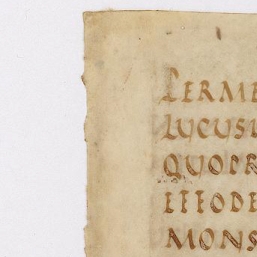 PERME
LUCUSI
QUOPR
EFFODE
MONS